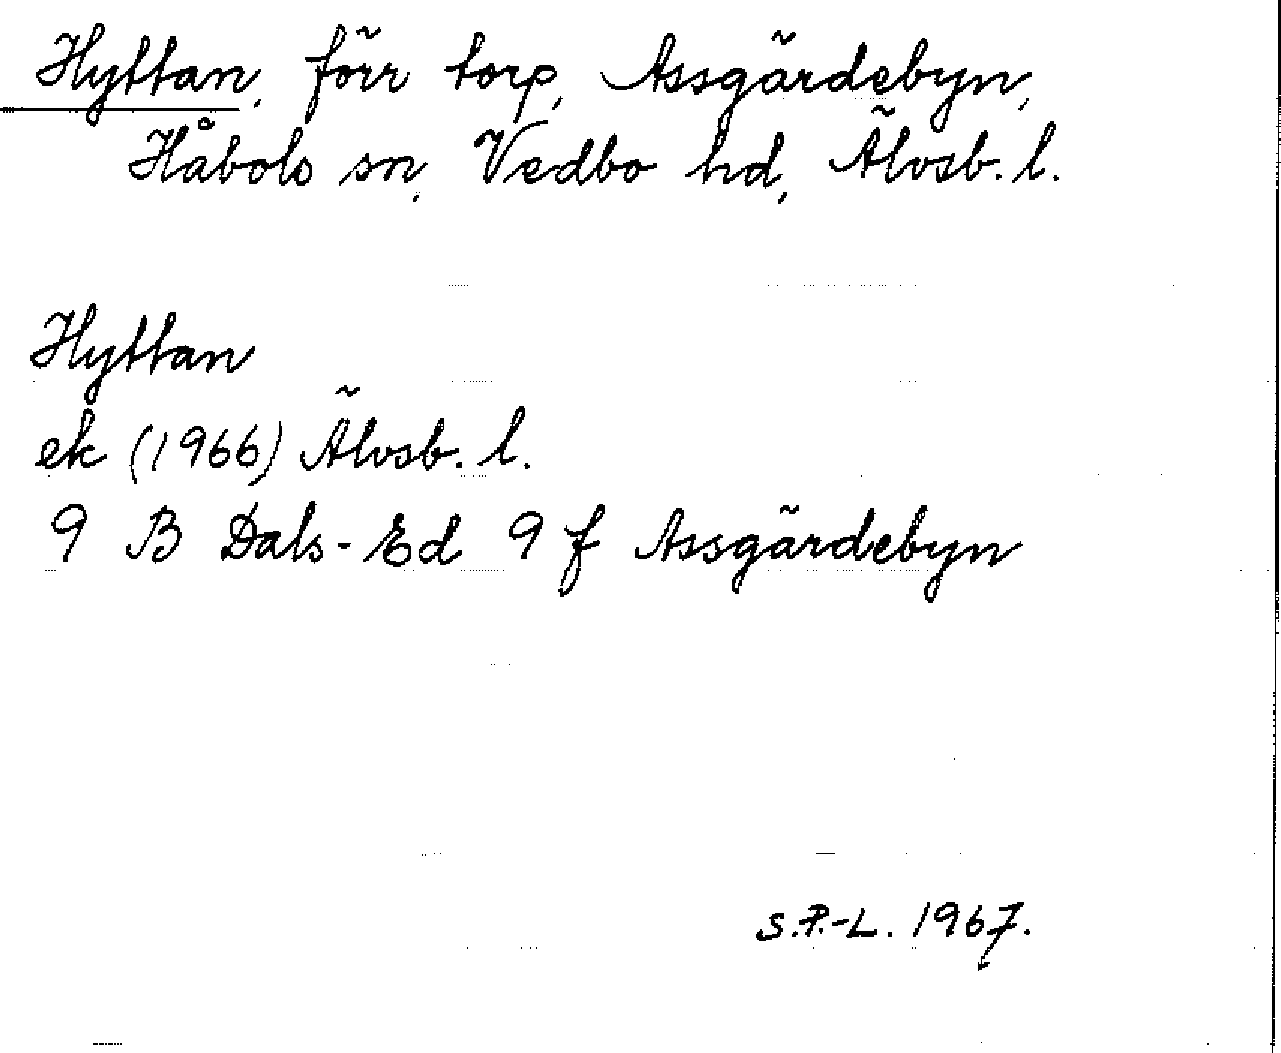 Hyttan, förr torp, Assgärdebyn,
Håbols sn, Vedbo hd, Älvsb. l.
Hyttan
ek (1966) Älvsb. l.
9 B Dals-Ed 9 f Assgärdebyn
S.P.-L. 1967.